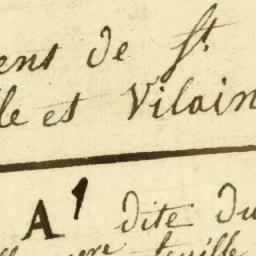 ens de St.
le et Vilain
A1 dite du
feuille